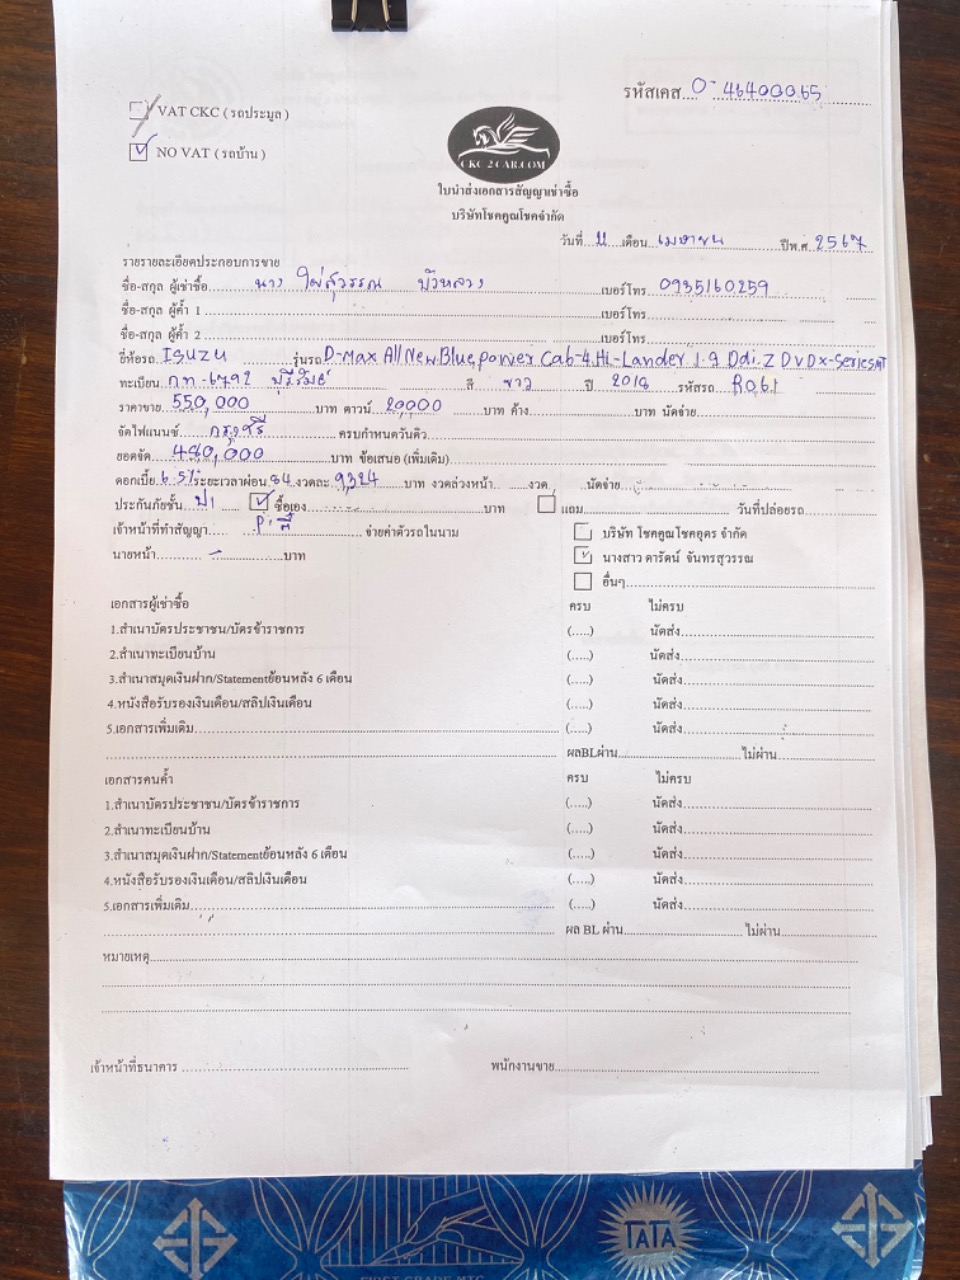 รหัสเคส...0-46400065
VAT CKC ( รถประมูล )
NO VAT ( รถบ้าน )
CKC 2 CAR.COM
ใบนำส่งเอกสารสัญญาเช่าซื้อ
บริษัทโชคคูณโชคจำกัด
วันที่ 11 เดือน เมษายน ปีพ.ศ. 2567
รายรายละเอียดประกอบการขาย
ชื่อ-สกุล ผู้เช่าซื้อ นาง ใฝ่สุวรรณ บัวหลวง เบอร์โทร 0935160259
ชื่อ-สกุล ผู้ค้ำ 1 เบอร์โทร
ชื่อ-สกุล ผู้ค้ำ 2 เบอร์โทร
ยี่ห้อรถ Isuzu รุ่นรถ D-Max All New Bluepower Cab-4 Hi-Lander 1.9 Ddi Z DVD X-Series MT
ทะเบียน กท-6792 บุรีรัมย์ สี ขาว ปี 2018 รหัสรถ R061
ราคาขาย 550,000 บาท ดาวน์ 20000 บาท ค้าง บาท นัดจ่าย
จัดไฟแนนซ์ กรุงศรี ครบกำหนดวันคิว
ยอดจัด 480,000 บาท ข้อเสนอ (เพิ่มเติม)
ดอกเบี้ย 6.5% ระยะเวลาผ่อน 84 งวดละ 9,324 บาท งวดล่วงหน้า งวด นัดจ่าย
ประกันภัยชั้น ป1 ซื้อเอง บาท แถม วันที่ปล่อยรถ
เจ้าหน้าที่ทำสัญญา จ่ายค่าตัวรถในนาม
บริษัท โชคคูณโชคอุดร จำกัด
นายหน้า - บาท
นางสาว ดารัตน์ จันทรสุวรรณ
อื่นๆ
เอกสารผู้เช่าซื้อ ครบ ไม่ครบ
1.สำเนาบัตรประชาชน/บัตรข้าราชการ (.....) นัดส่ง
2.สำเนาทะเบียนบ้าน (.....) นัดส่ง
3.สำเนาสมุดเงินฝาก/Statementย้อนหลัง 6 เดือน (.....) นัดส่ง
4.หนังสือรับรองเงินเดือน/สลิปเงินเดือน (.....) นัดส่ง
5.เอกสารเพิ่มเติม (.....) นัดส่ง
ผลBLผ่าน ไม่ผ่าน
เอกสารคนค้ำ ครบ ไม่ครบ
1.สำเนาบัตรประชาชน/บัตรข้าราชการ (.....) นัดส่ง
2.สำเนาทะเบียนบ้าน (.....) นัดส่ง
3.สำเนาสมุดเงินฝาก/Statementย้อนหลัง 6 เดือน (.....) นัดส่ง
4.หนังสือรับรองเงินเดือน/สลิปเงินเดือน (.....) นัดส่ง
5.เอกสารเพิ่มเติม (.....) นัดส่ง
ผล BL ผ่าน ไม่ผ่าน
หมายเหตุ
เจ้าหน้าที่ธนาคาร พนักงานขาย
TATA